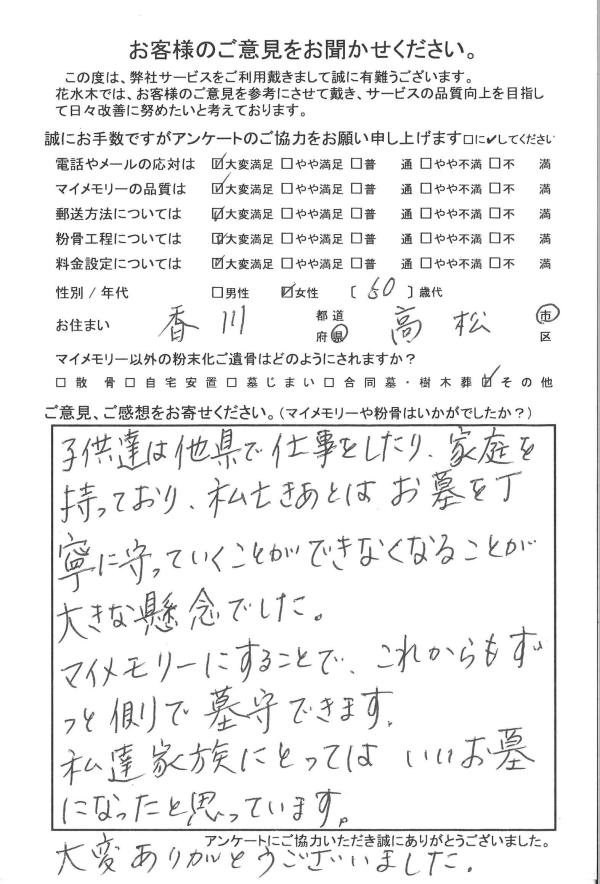 お客様のご意見をお聞かせください。
この度は、弊社サービスをご利用戴きまして誠に有難うございます。
花水木では、お客様のご意見を参考にさせて戴き、サービスの品質向上を目指し
て日々改善に努めたいと考えております。
誠にお手数ですがアンケートのご協力をお願い申し上げます□に✓してください
電話やメールの応対は ☑大変満足 □やや満足 □普 通 □やや不満 □不 満
マイメモリーの品質は ☑大変満足 □やや満足 □普 通 □やや不満 □不 満
郵送方法については ☑大変満足 □やや満足 □普 通 □やや不満 □不 満
粉骨工程については ☑大変満足 □やや満足 □普 通 □やや不満 □不 満
料金設定については ☑大変満足 □やや満足 □普 通 □やや不満 □不 満
性別 / 年代 □男性 ☑女性 〔 60 〕歳代
お住まい 香川 都道府県 高松 市区
マイメモリー以外の粉末化ご遺骨はどのようにされますか?
□散 骨 □自宅安置 □墓じまい □合同墓・樹木葬 ☑その他
ご意見、ご感想をお寄せください。(マイメモリーや粉骨はいかがでしたか?)
子供達は他県で仕事をしたり、家庭を
持っており、私亡きあとは お墓を丁
寧に守っていくことができなくなることが
大きな懸念でした。
マイメモリーにすることで、これからもず
っと側で墓守できます。
私達家族にとっては いいお墓
になったと思っています。
アンケートにご協力いただき誠にありがとうございました。
大変ありがとうございました。